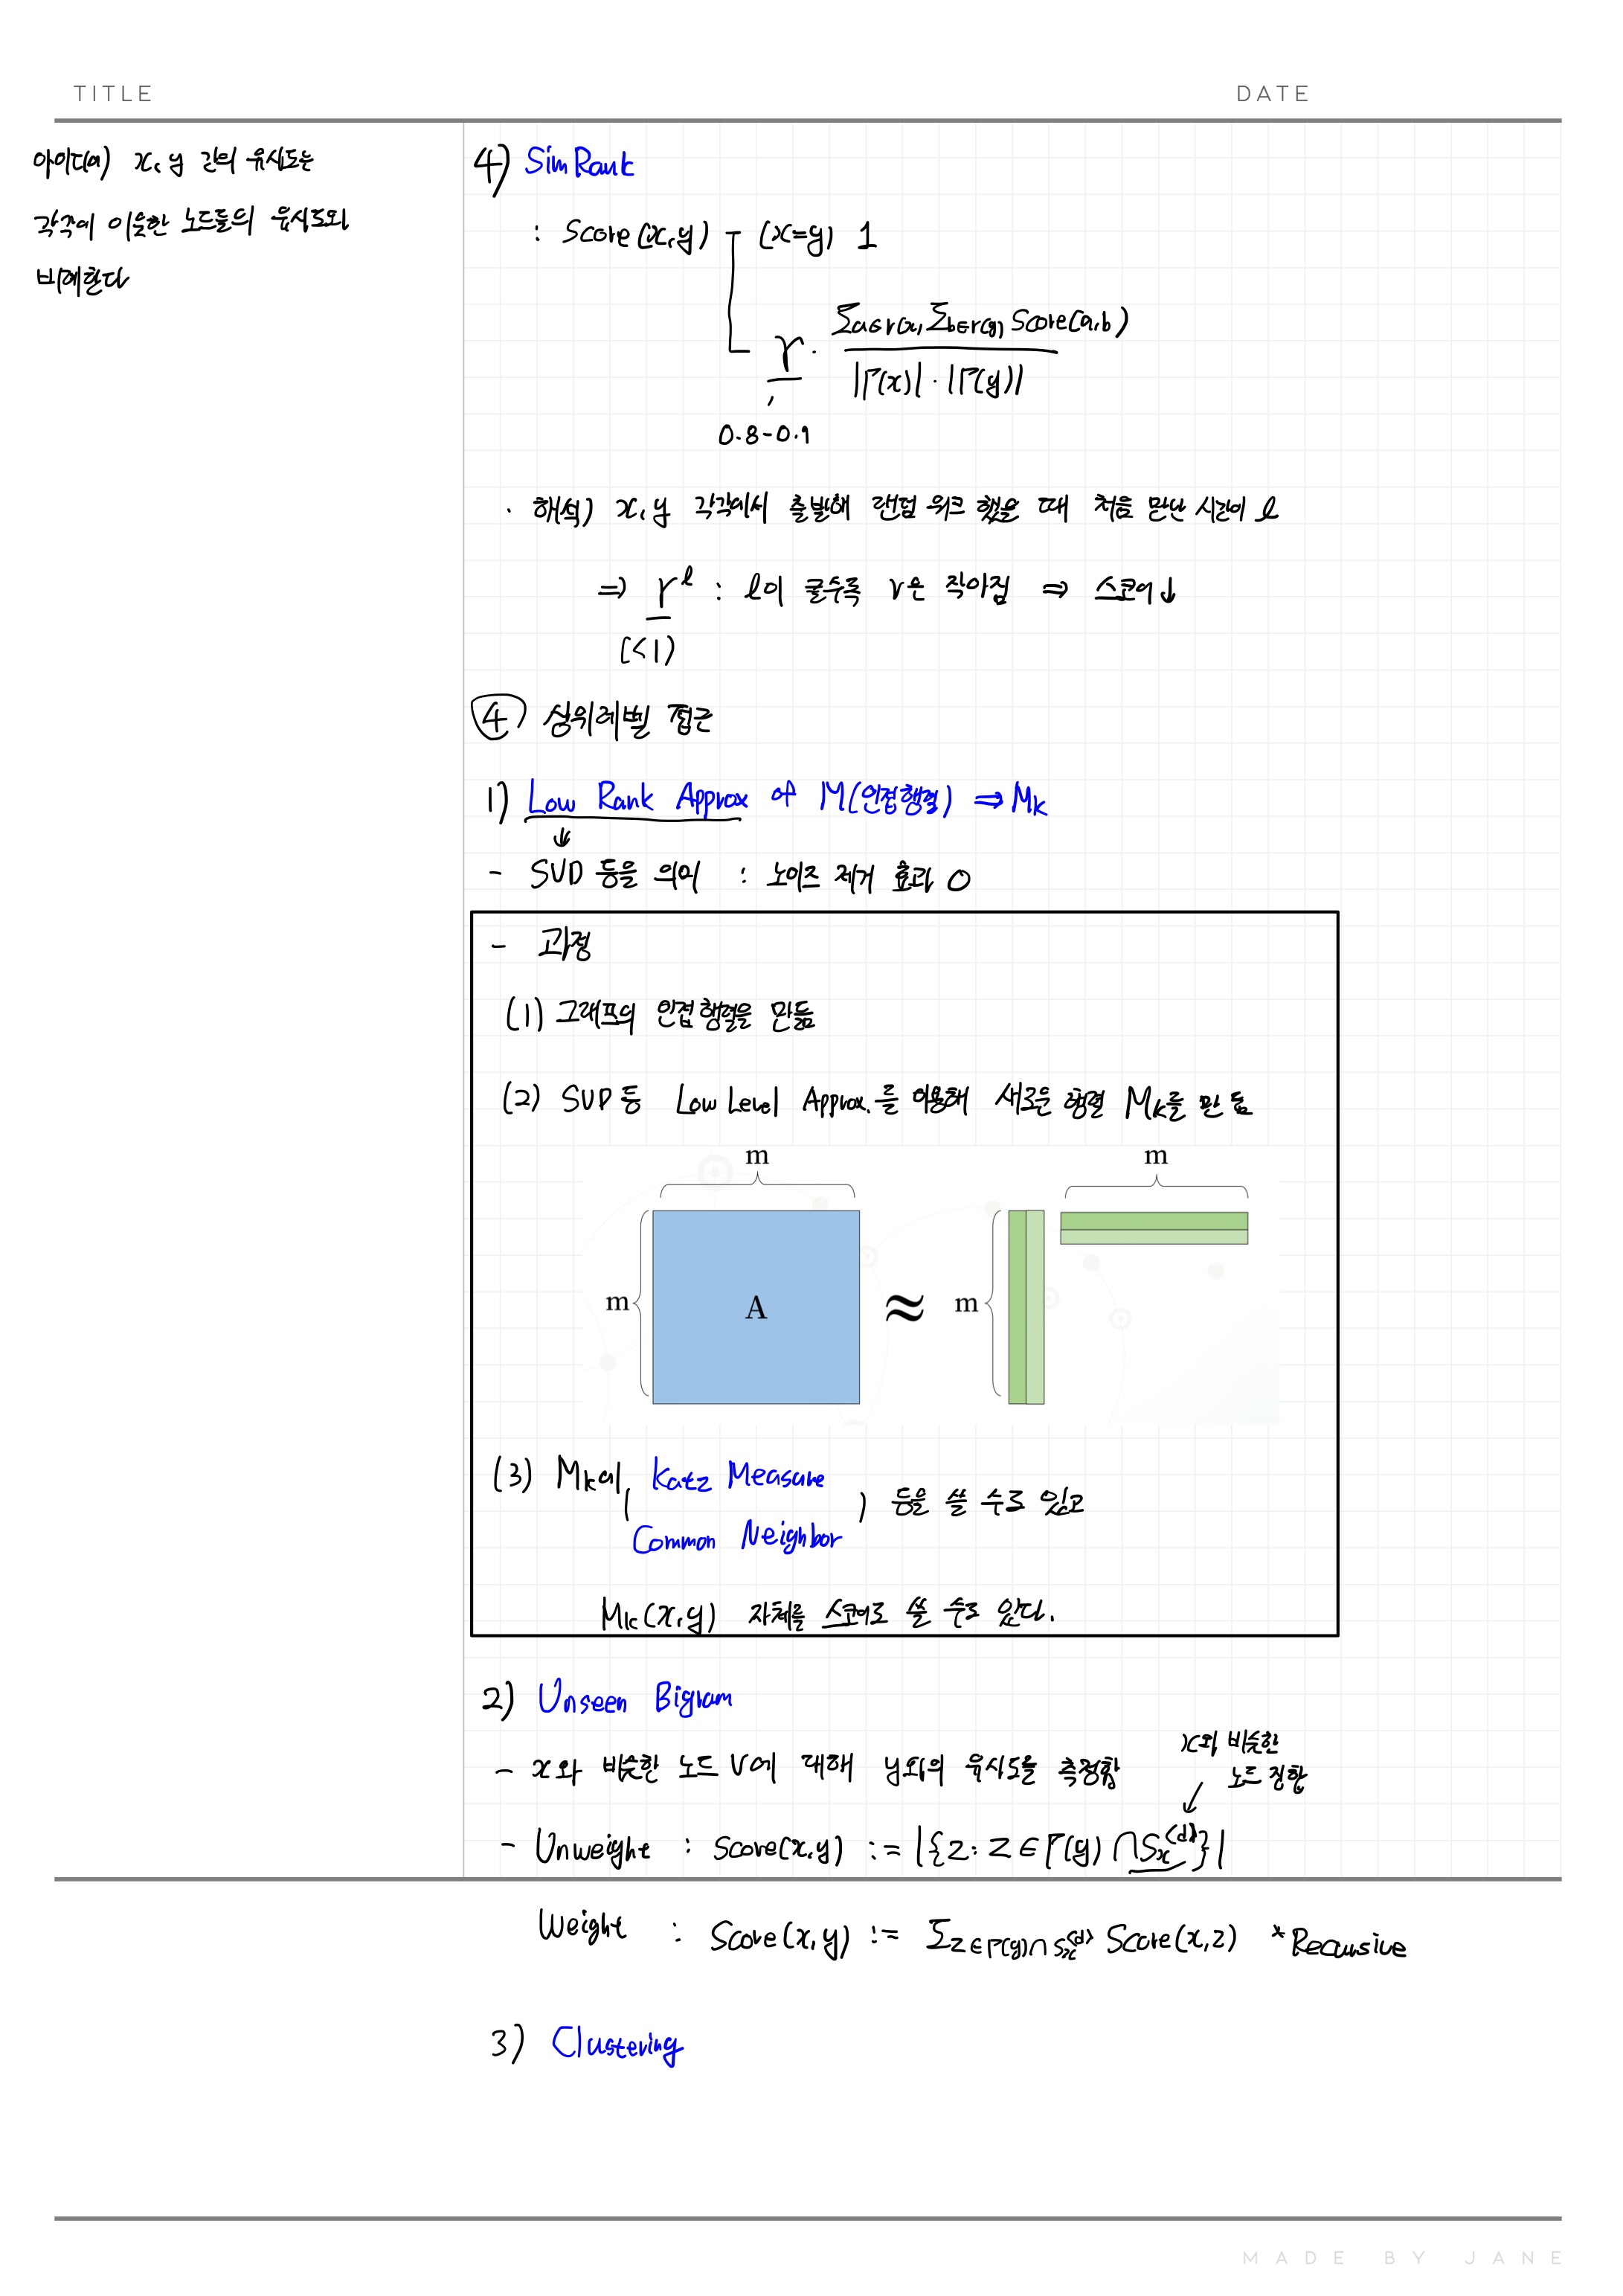 TITLE
DATE
아이디어) x, y 간의 유사도는
각각에 이웃한 노드들의 유사도와
비례한다
4) SimRank
: Score(x,y) (x=y) 1
γ · Σa∈Γ(x) Σb∈Γ(y) Score(a,b)
|Γ(x)| · |Γ(y)|
0.8-0.9
· 해석) x, y 각각에서 출발해 랜덤 워크 했을 때 처음 만난 시간이 l
⇒ γ^l : l이 클수록 γ은 작아짐 ⇒ 스코어↓
(<1)
④ 상위레벨 접근
1) Low Rank Approx of M(인접행렬) ⇒ Mk
↓
- SVD 등을 의미 : 노이즈 제거 효과 O
- 과정
(1) 그래프의 인접행렬을 만듦
(2) SVD 등 Low Level Approx.를 이용해 새로운 행렬 Mk를 만듦
m m
m A ≈ m
(3) Mk에 ( Katz Measure
Common Neighbor ) 등을 쓸 수도 있고
Mk(x,y) 자체를 스코어로 쓸 수도 있다.
2) Unseen Bigram
- x와 비슷한 노드 v에 대해 y와의 유사도를 측정함
x와 비슷한
노드 집합
- Unweight : Score(x,y) := |{z: z∈Γ(y) ∩ Sx^(d)}|
Weight : Score(x,y) := Σz∈Γ(y)∩Sx^(d) Score(x,z) *Recursive
3) Clustering
MADE BY JANE